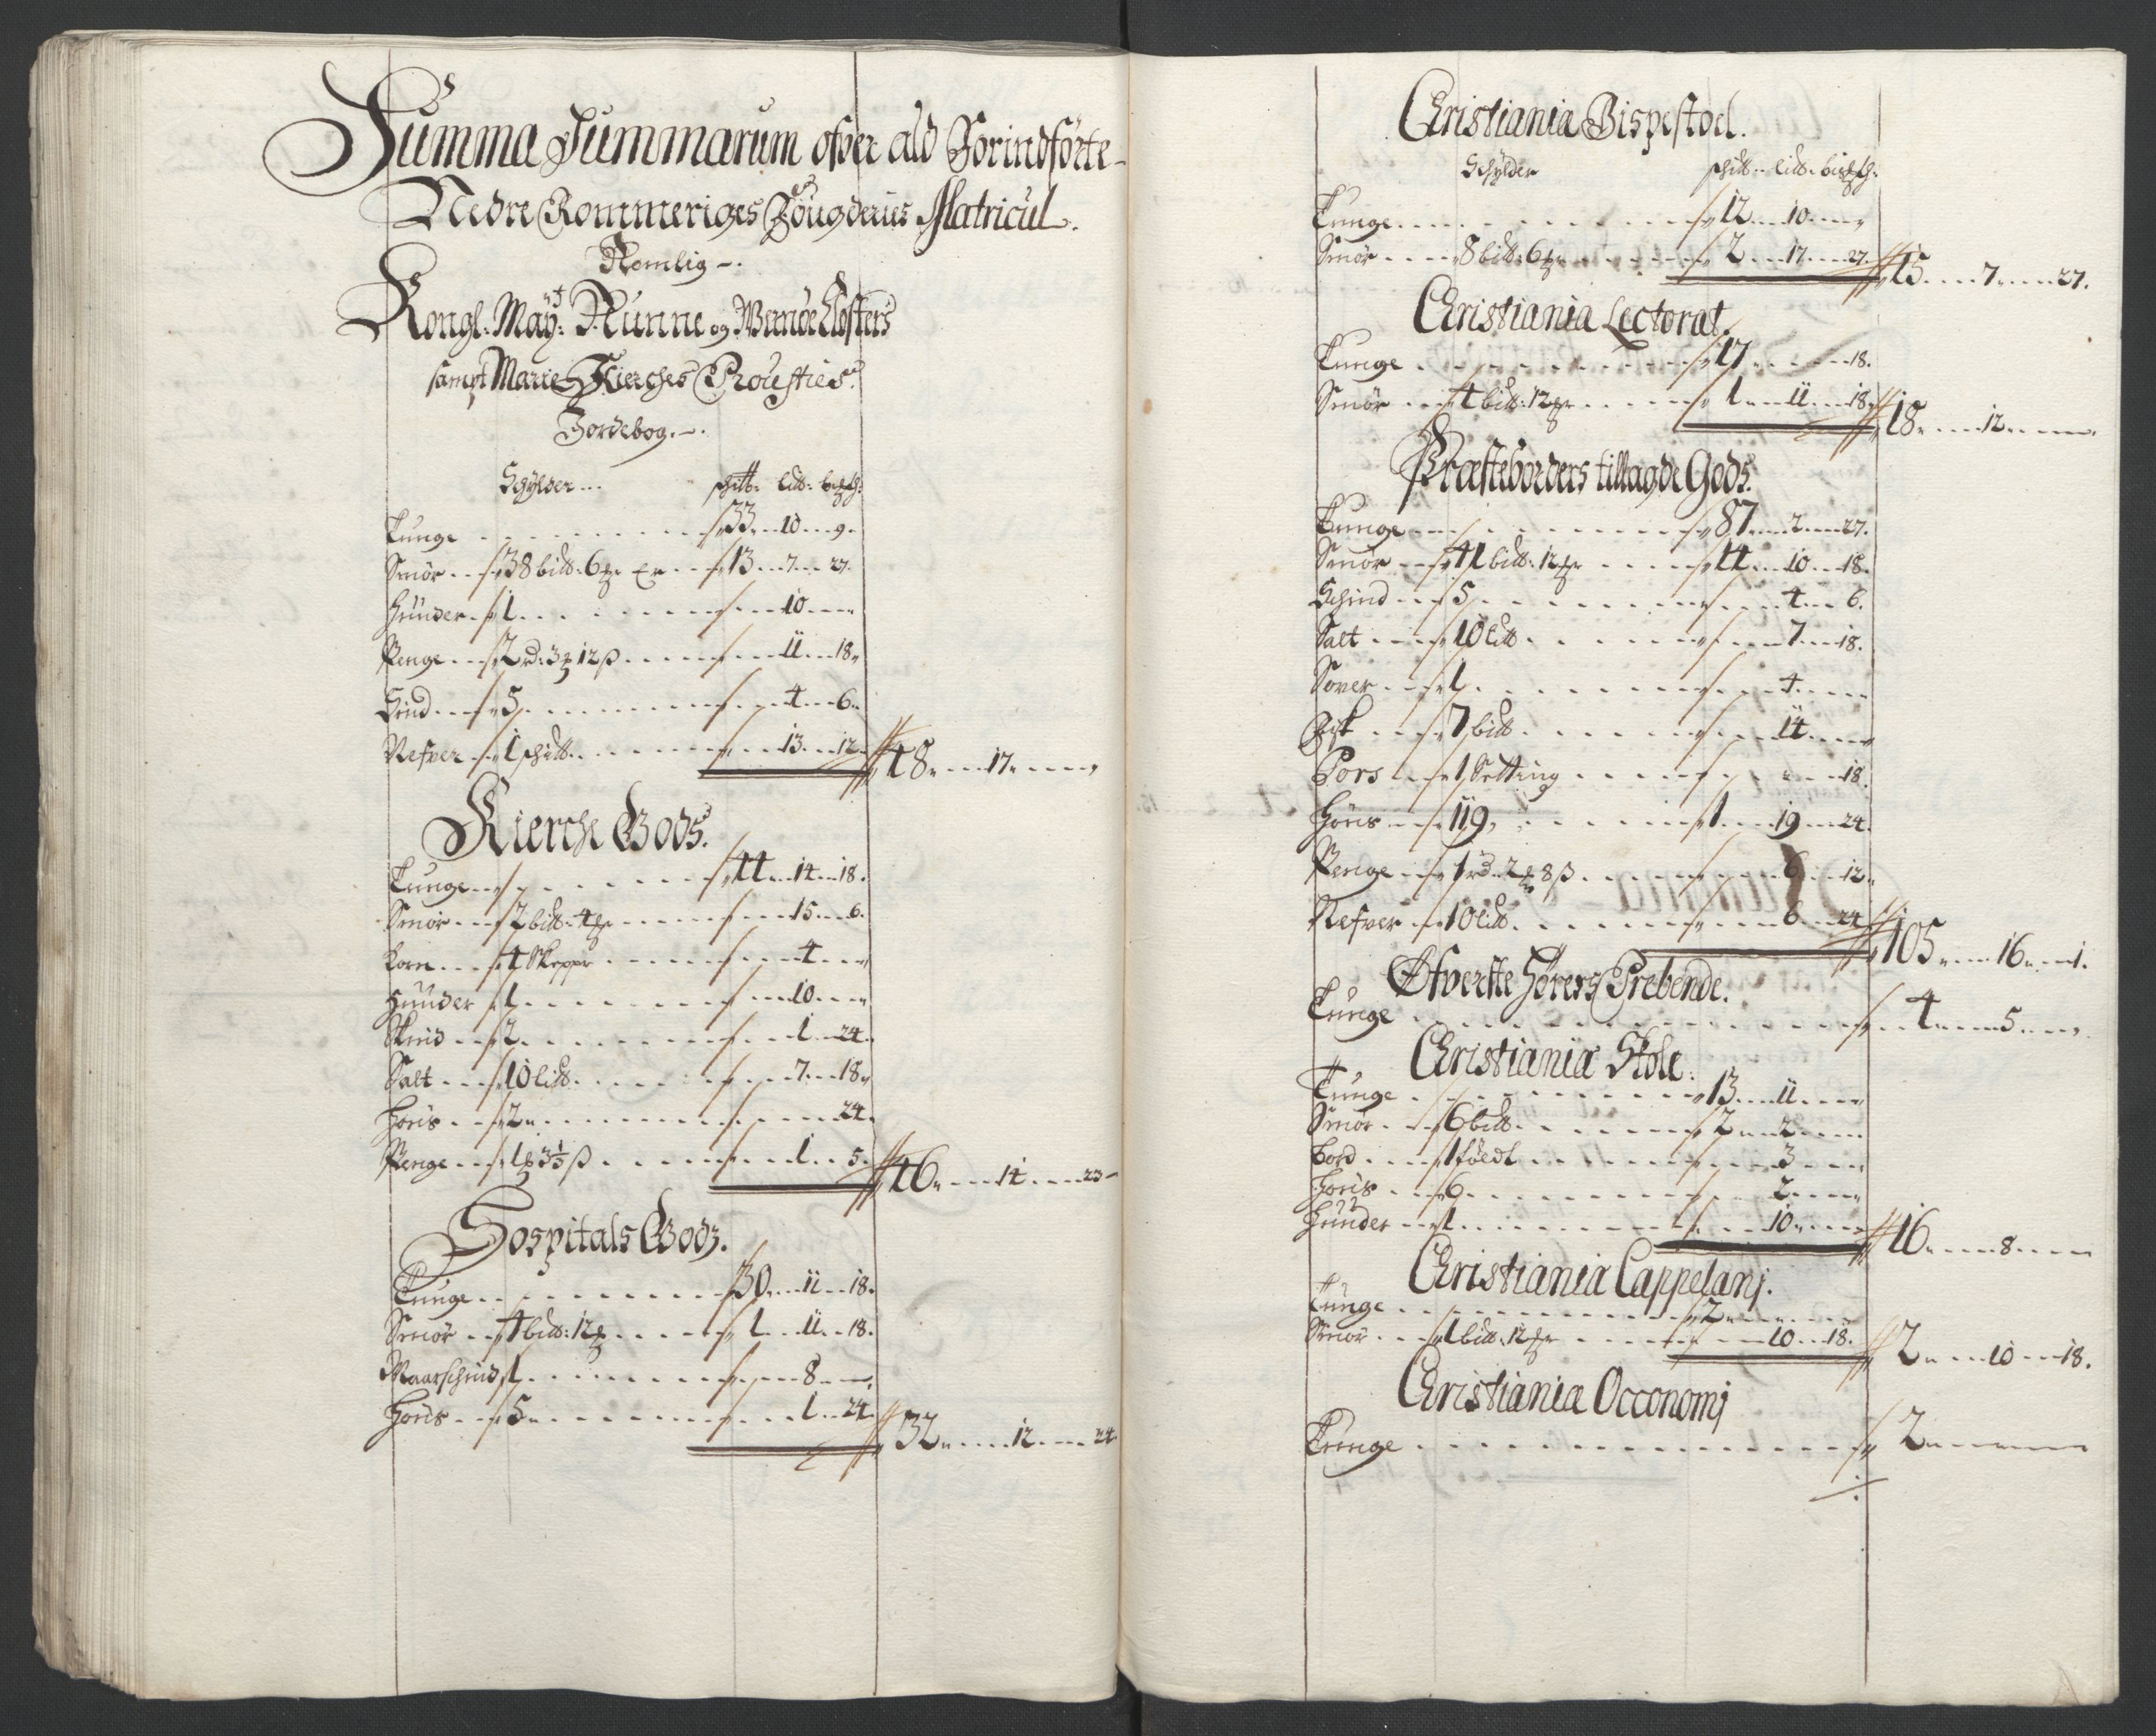 Summa Summarum ofver ald Forindförte
Nedre Rommeriges Fougderies Matricul.
Nemlig
Kongl: May:t Nunne og Wernøe Closters
sampt Marie Kierches Prousties
Jordebog.
Schylder schitt: litt: bißm:
Tunge 33 10 9
Smör 38 bitt: 6 er 13 7 27
Hunder 1 10
Penge 2 rd: 3 12 ß 11 18
Schind 5 4 6
Nefver 1 schitt 13 12 48 17
Kierche Gods.
Tunge 44 14 18
Smör 2 bitt: 4 15 6
Korn 4 Skepper 4
Hunder 1 10
Skind 2 1 24
Salt 10 litt 7 18
Höris 2 24
Penge 1 3½ ß 1 5 46 14 23
Hospitals Godz.
Tunge 30 11 18
Smör 4 bitt: 12 1 11 18
Maarschind 1 8
Höris 5 1 24 32 12 24
Christiania Bispestoel.
Schylder schitt litt:
Tunge 12 10
Smör 8 bitt: 6 2 17 27 15 7 27
Christiania Lectorat.
Tunge 17 18
Smör 4 bitt: 12 1 11 18 18 12
Præsteborders tillagde Gods.
Tunge 87 2 27
Smör 41 bitt: 12 14 10 18
Schind 5 4 6
Salt 10 litt 7 18
Sover 1 4
Fisk 7 bitt 14
Pors 1 Setting 18
Höris 119 1 19 24
Penge 1 rd 2 8 ß 6 12
Nefver 10 litt 6 24 105 16 1
Øfverste Hørers Prebende.
Tunge 4 5
Christiania Skole.
Tunge 13 11
Smör 6 bitt 2 2
Bord 3
Höris 6 2
Hunder 1 10 16 8
Christiania Cappelanj.
Tunge 2
Smör 1 bitt: 12 10 18 2 10 18
Christiania Occonomj
Tunge 2